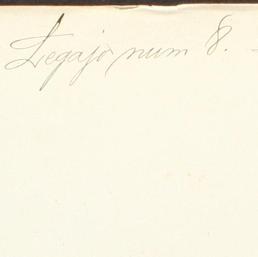 Legajo num 8. -